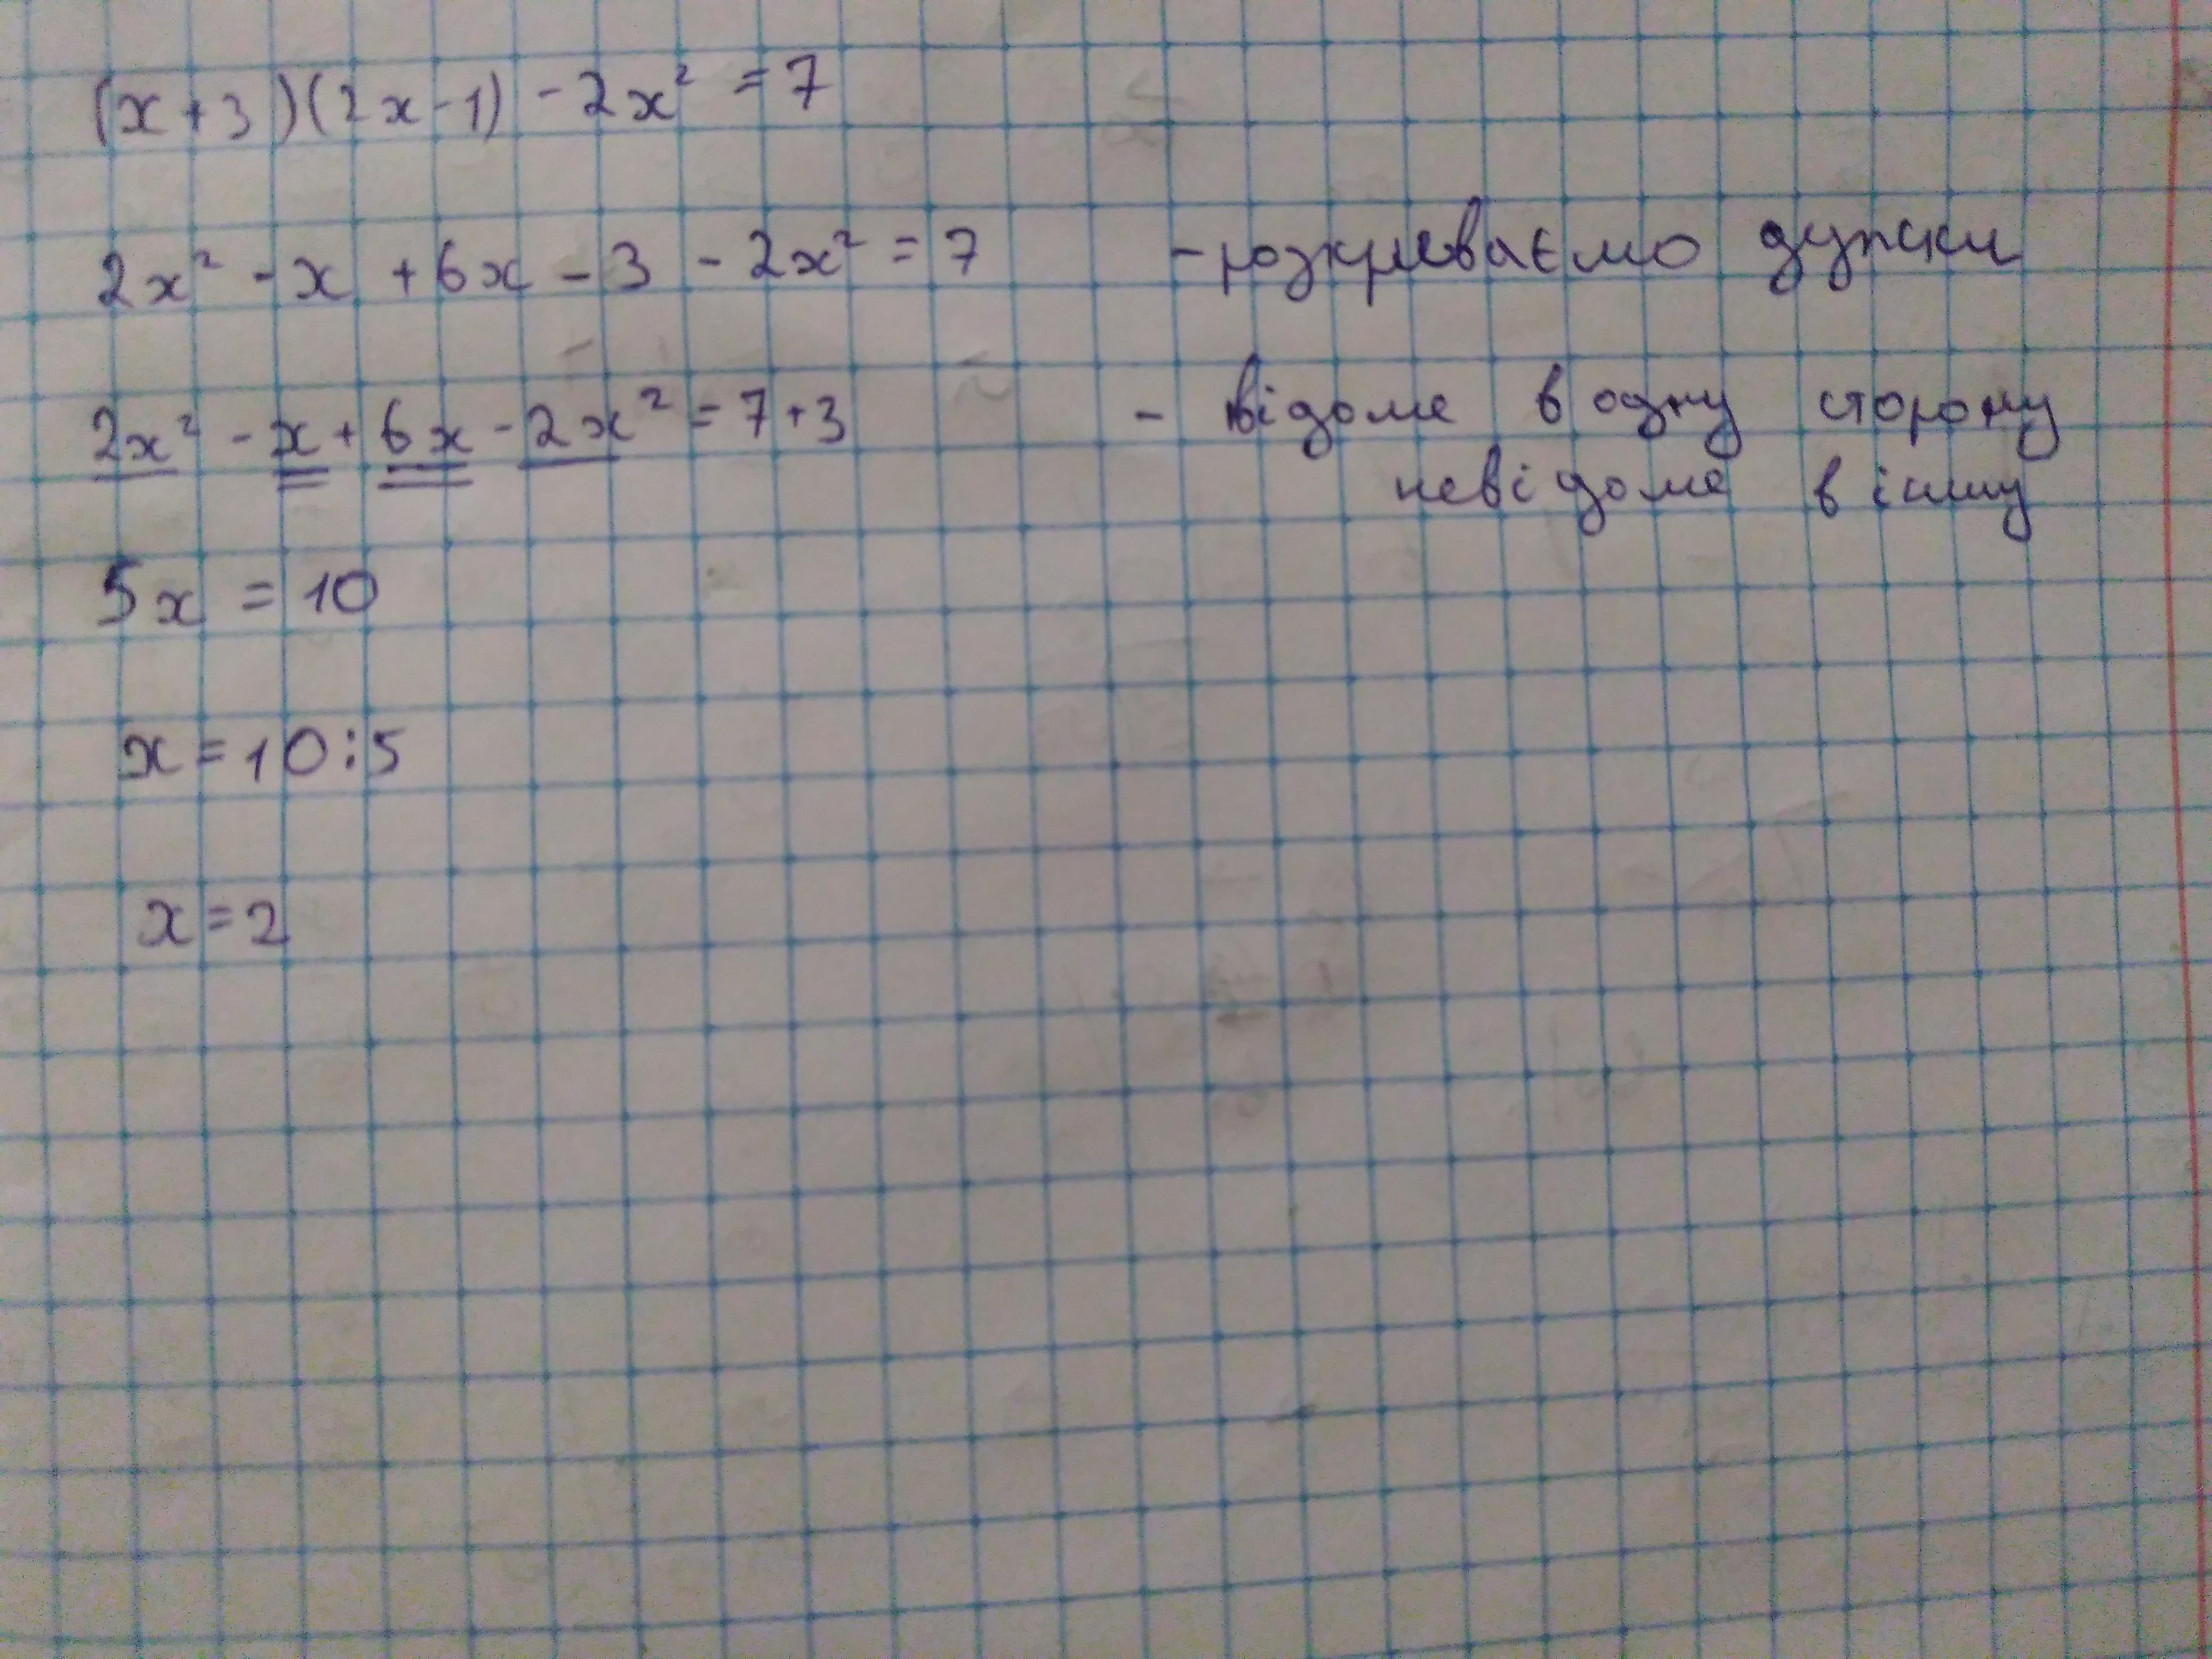 (x+3)(2x-1) - 2x² = 7
2x² - x + 6x - 3 - 2x² = 7 - розкриваємо дужки
2x² - x + 6x - 2x² = 7+3 - відоме в одну сторону
невідоме в іншу
5x = 10
x = 10:5
x = 2